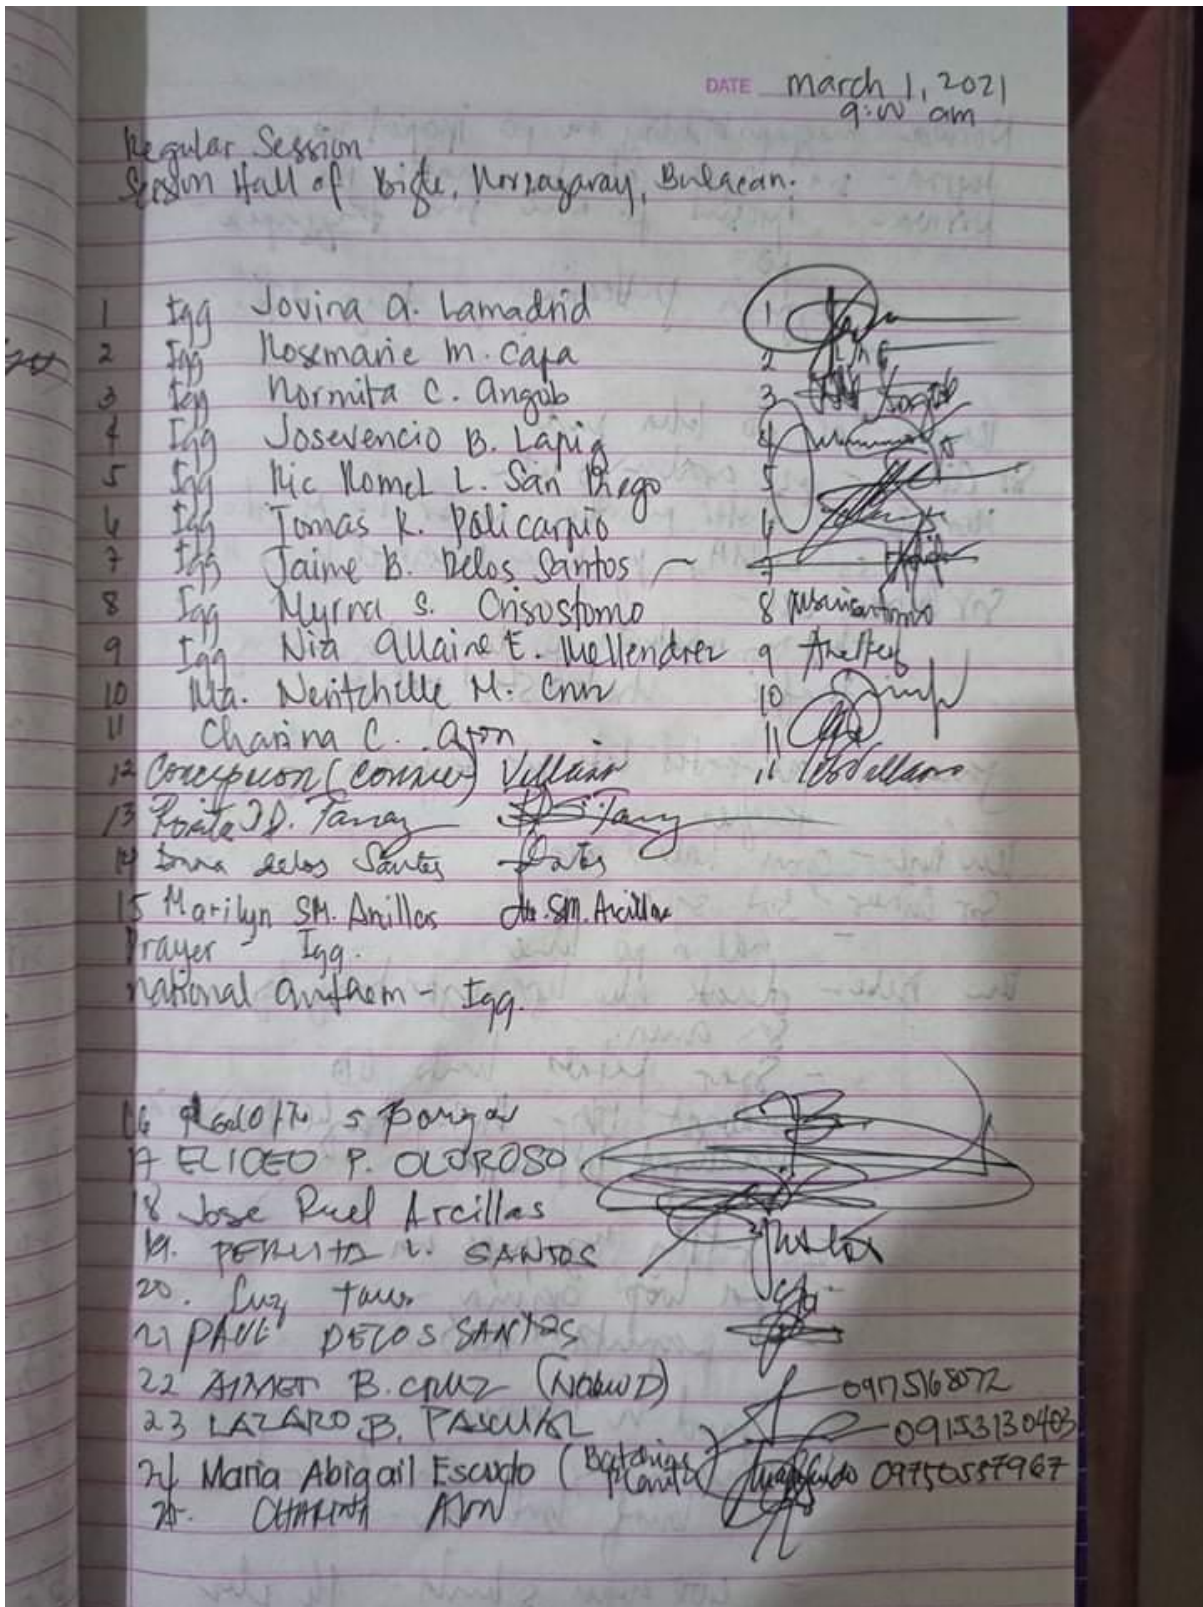 DATE march 1, 2021
9:00 am
Regular Session
Session Hall of Bigte, Norzagaray, Bulacan.
1 Igg Jovina A. Lamadrid 1
2 Igg Rosemarie M. Capa 2
3 Igg Normita C. Angob 3
4 Igg Josevencio B. Lapig 4
5 Igg Ric Romel L. San Diego 5
6 Igg Tomas K. Policarpio 6
7 Igg Jaime B. Delos Santos 7
8 Igg Myrna S. Crisostomo 8
9 Igg Nia Allaine E. Mellendrez 9
10 Ma. Neritchelle M. Cruz 10
11 Charina C. Ajon 11
12 Concepcion (Connie) Villano 11
13 D. Tanay
14 delos Santos
15 Marilyn SM. Arcillas SM. Arcillas
Prayer Igg.
National Anthem - Igg.
16 S
17 ELICEO P. OLOROSO
18 Jose Ruel Arcillas
19. PERLITA L. SANTOS
20. Luz
21 PAUL DELOS SANTOS
22 AIMER B. CRUZ 09175168072
23 LAZARO B. PASCUAL 09153130403
24 Maria Abigail Escudo (Batching Plant) 09750557967
25. CHARINA AJON